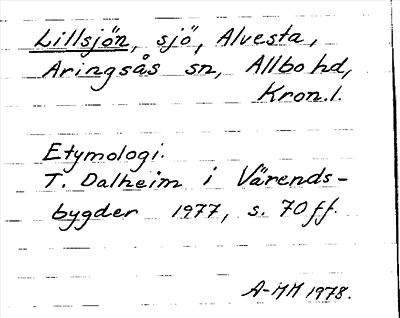 Lillsjön, sjö, Alvesta,
Aringsås sn, Allbo hd,
Kron.l.
Etymologi.
T. Dalheim i Värends-
bygder 1977, s. 70ff.
A-MM 1978.